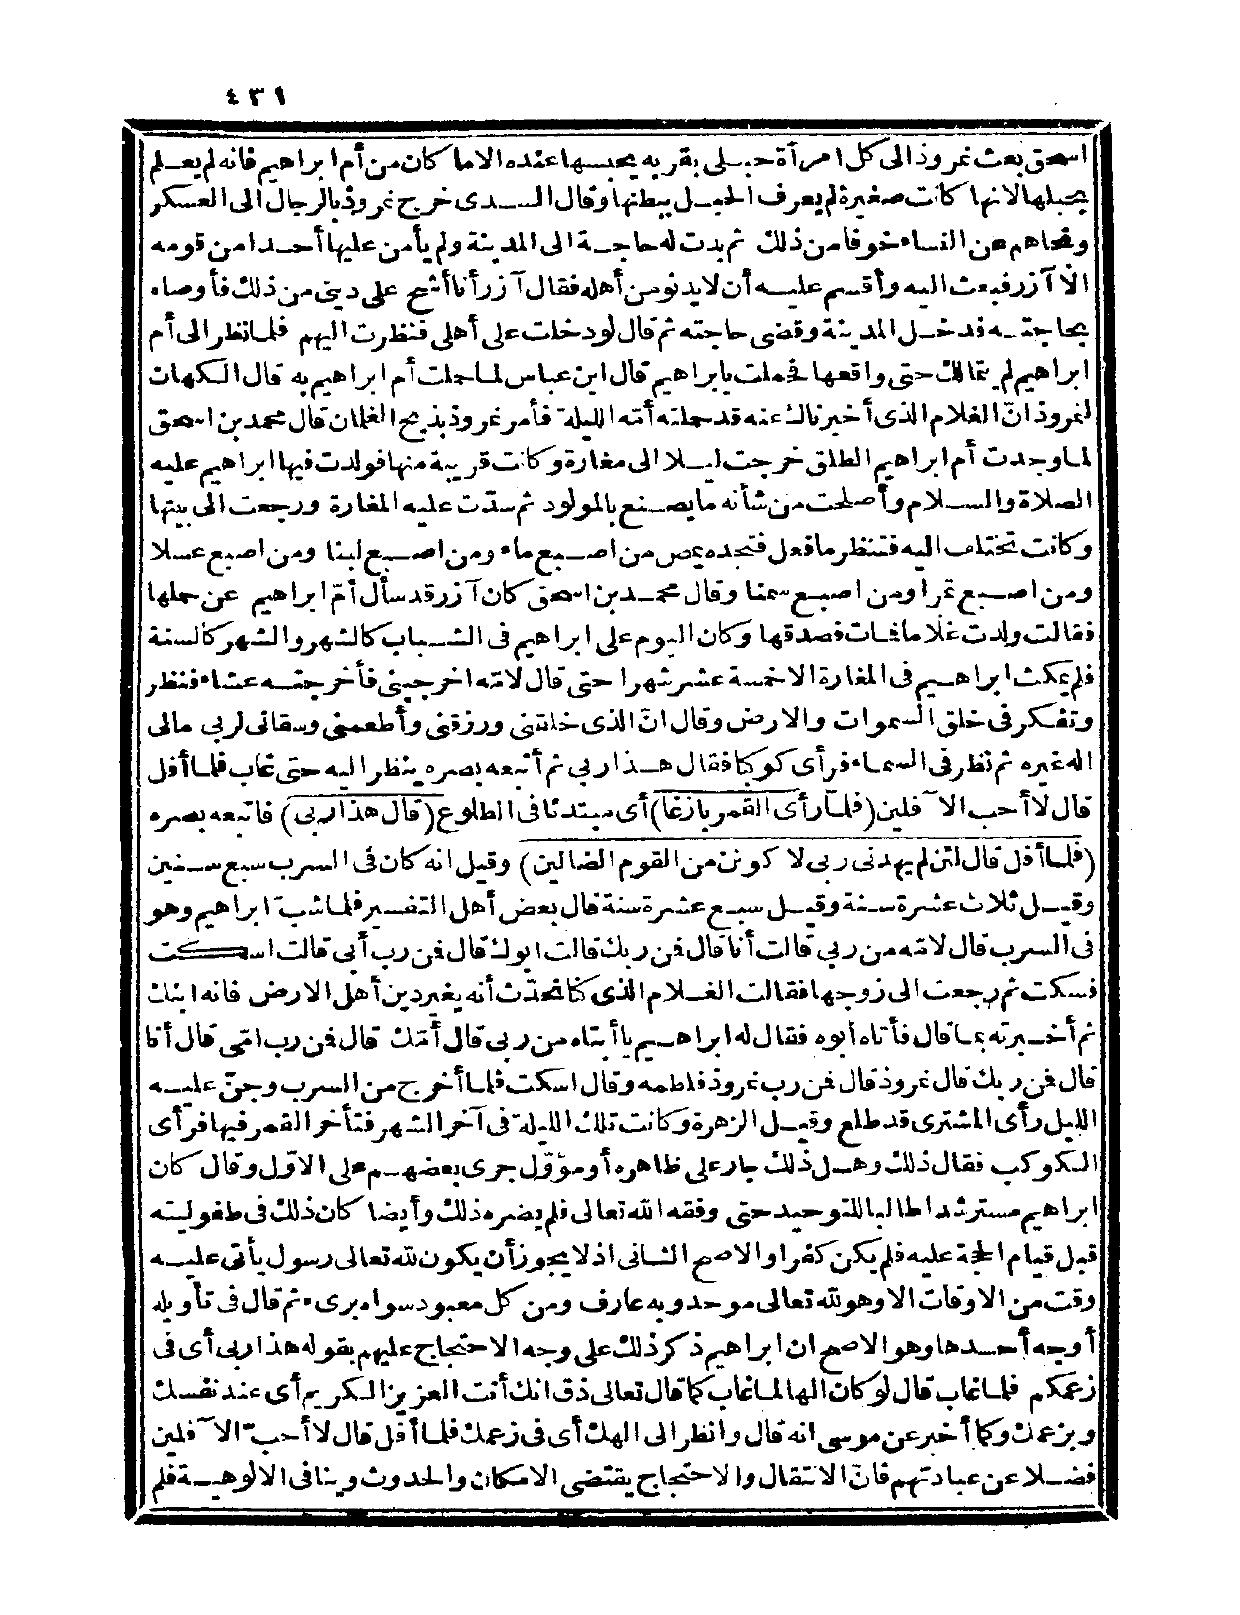 ٤٣١
اسحق بعث نمروذ الى كل امرأة حبلى بقريه يحبسها عنده الاما كان من أم ابراهيم فانه لم يعلم
بحبلها لانها كانت صغيرة لم يعرف الحبل ببطنها وقال السدى خرج نمروذ بالرجال الى العسكر
ونحاهم عن النساء خوفا من ذلك ثم بدت له حاجة الى المدينة ولم يأمن عليها أحدا من قومه
الا آزر فبعث اليه وأقسم عليه أن لا يدنو من أهله فقال آزر أنا أشح على دينى من ذلك فأوصاه
بحاجته فدخل المدينة وقضى حاجته ثم قال لو دخلت على أهلى فنظرت اليهم فلما نظر الى أم
ابراهيم لم يتمالك حتى واقعها فحملت بابراهيم قال ابن عباس لما حملت أم ابراهيم به قال الكهان
لنمروذ انّ الغلام الذى أخبرناك عنه قد حملته أمّه الليلة فأمر نمروذ بذبح الغلمان قال محمد بن اسحق
لما وجدت أم ابراهيم الطلق خرجت ليلا الى مغارة وكانت قريبة منها فولدت فيها ابراهيم عليه
الصلاة والسلام وأصلحت من شأنه ما يصنع بالمولود ثم سدّت عليه المغارة ورجعت الى بيتها
وكانت تختلف اليه فتنظر ما فعل فتجده يمص من اصبع ماء ومن اصبع لبنا ومن اصبع عسلا
ومن اصبع تمرا ومن اصبع سمنا وقال محمد بن اسحق كان آزر قد سأل أمّ ابراهيم عن حملها
فقالت ولدت غلاما فمات فصدقها وكان اليوم على ابراهيم فى الشباب كالشهر والشهر كالسنة
فلم يمكث ابراهيم فى المغارة الا خمسة عشر شهرا حتى قال لامّه اخرجينى فأخرجته عشاء فنظر
وتفكر فى خلق السموات والارض وقال انّ الذى خلقنى ورزقنى وأطعمنى وسقانى لربى مالى
اله غيره ثم نظر فى السماء فرأى كوكبا فقال هذا ربى ثم أتبعه بصره ينظر اليه حتى غاب فلما أفل
قال لا أحب الآفلين (فلمّا رأى القمر بازغا) أى مبتدئا فى الطلوع (قال هذا ربى) فاتبعه بصره
(فلما أفل قال لئن لم يهدنى ربى لأكونن من القوم الضالين) وقيل انه كان فى السرب سبع سنين
وقيل ثلاث عشرة سنة وقيل سبع عشرة سنة قال بعض أهل التفسير فلما شب ابراهيم وهو
فى السرب قال لامّه من ربى قالت أنا قال فمن ربك قالت ابوك قال فمن رب أبى قالت اسكت
فسكت ثم رجعت الى زوجها فقالت الغلام الذى كنا نحدّث أنه يغير دين أهل الارض فانه ابنك
ثم أخبرته بما قال فأتاه أبوه فقال له ابراهيم يا أبتاه من ربى قال أمّك قال فمن رب امّى قال أنا
قال فمن ربك قال نمروذ قال فمن رب نمروذ فلطمه وقال اسكت فلما أخرج من السرب وجنّ عليه
الليل رأى المشترى قد طلع وقيل الزهرة وكانت تلك الليلة فى آخر الشهر فتأخر القمر فيها فرأى
الكوكب فقال ذلك وهل ذلك جار على ظاهره أو مؤوّل جرى بعضهم على الاوّل وقال كان
ابراهيم مسترشدا طالبا للتوحيد حتى وفقه الله تعالى فلم يضره ذلك وأيضا كان ذلك فى طفوليته
قبل قيام الحجة عليه فلم يكن كفرا والاصح الثانى اذ لا يجوز أن يكون لله تعالى رسول يأتى عليه
وقت من الاوقات الا وهو لله تعالى موحد وبه عارف ومن كل معبود سواه برىء ثم قال فى تأويله
أوجه أحدها وهو الاصح ان ابراهيم ذكر ذلك على وجه الاحتجاج عليهم بقوله هذا ربى أى فى
زعمكم فلما غاب قال لو كان الها لما غاب كما قال تعالى ذق انك أنت العزيز الكريم أى عند نفسك
وبزعمك وكما أخبر عن موسى انه قال وانظر الى الهك أى فى زعمك فلما أفل قال لا أحبّ الآفلين
فضلا عن عبادتهم فانّ الانتقال والاحتجاج يقتضى الامكان والحدوث وينافى الالوهية فلم